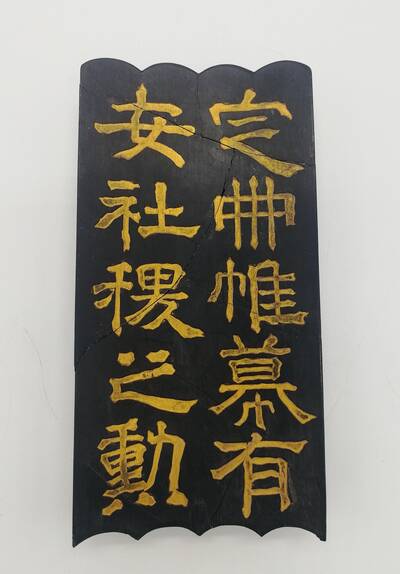 定冊帷幕有
安社稷之勲